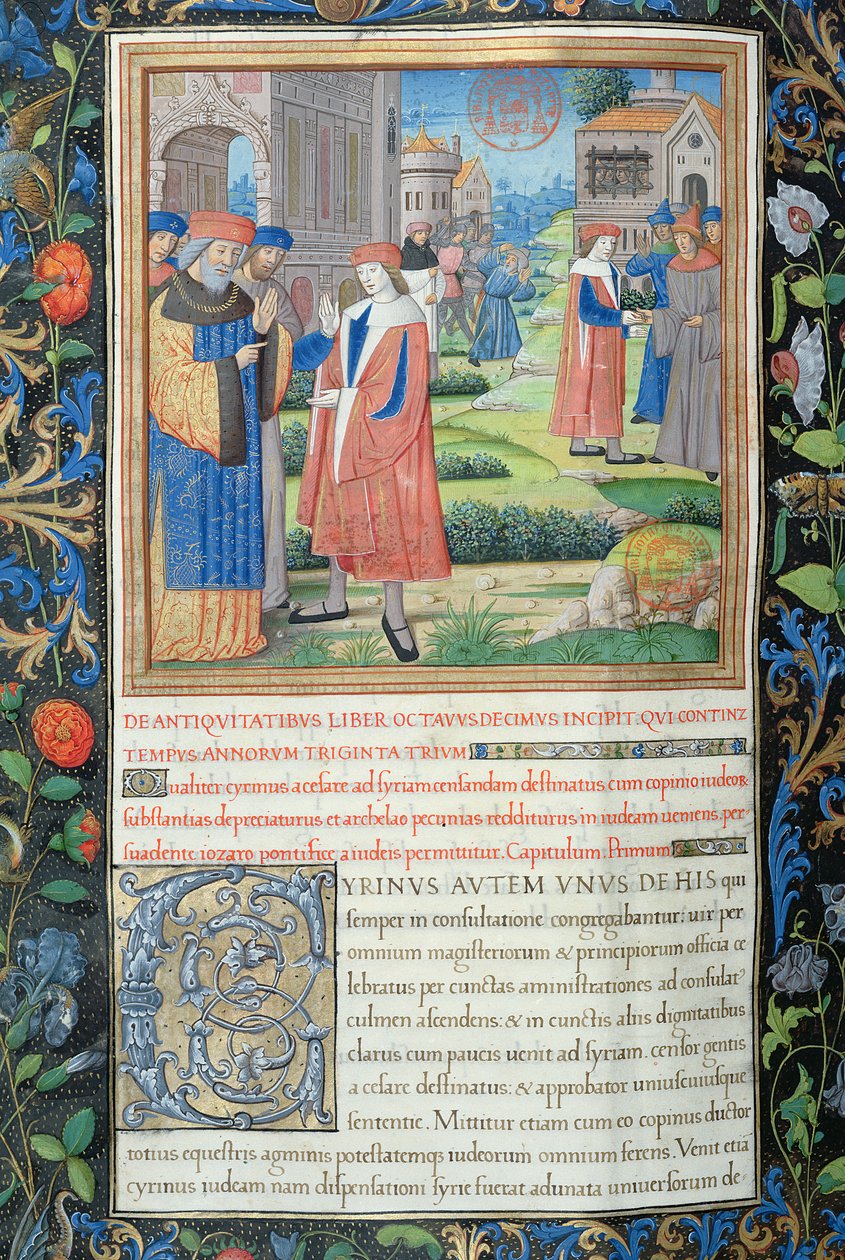 DE ANTIQVITATIBVS LIBER OCTAVVSDECIMVS INCIPIT. QVI CONTINZ
TEMPVS ANNORVM TRIGINTA TRIVM
Qualiter cyrinus a cesare ad syriam censandam destinatus cum copinio iudeoꝝ
substantias depreciaturus et archelao pecunias redditurus in iudeam ueniens. per-
suadente iozaro pontifice a iudeis permittitur. Capitulum. Primum.
CYRINVS AVTEM VNVS DE HIS qui
semper in consultatione congregabantur: uir per
omnium magisteriorum & principiorum officia ce
lebratus per cunctas aministrationes ad consulat᷒
culmen ascendens: & in cunctis aliis dignitatibus
clarus cum paucis uenit ad syriam. censor gentis
a cesare destinatus: & approbator uniuscuiusque
sententie. Mittitur etiam cum eo copinus ductor
totius equestris agminis potestatemqꝫ iudeorum omnium ferens. Venit etiā
cyrinus iudeam nam dispensationi syrie fuerat adunata uniuersorum de-